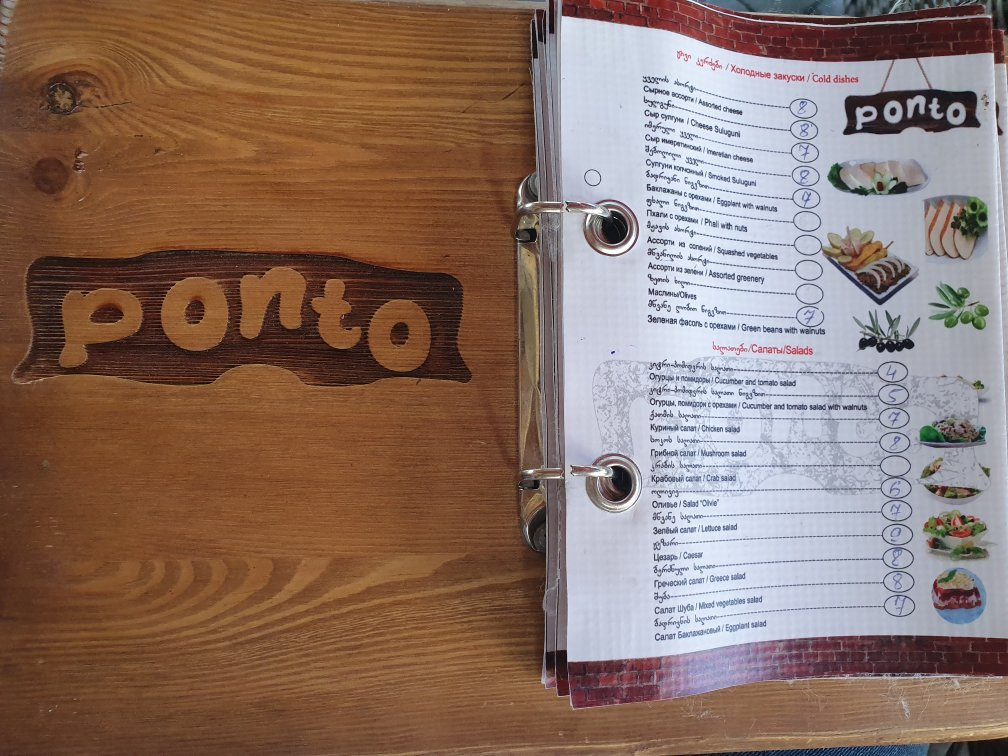 ponto
ponto
ცივი კერძები / Холодные закуски / Cold dishes
ყველის ასორტი
8
Сырное ассорти / Assorted cheese
სულგუნი
8
Сыр сулгуни / Cheese Suluguni
იმერული ყველი
7
Сыр имеретинский / Imeretian cheese
შებოლილი ყველი
8
Сулгуни копчонный / Smoked Suluguni
ბადრიჯანი ნიგვზით
7
Баклажаны с орехами / Eggplant with walnuts
ფხალი ნიგვზით
Пхали с орехами / Phali with nuts
მჟავის ასორტი
Ассорти из солений / Squashed vegetables
მწვანილის ასორტი
Ассорти из зелени / Assorted greenery
ზეთის ხილი
Маслины/Olives
მწვანე ლობიო ნიგვზით
7
Зеленая фасоль с орехами / Green beans with walnuts
სალათები/Салаты/Salads
კიტრი-პომიდვრის სალათი
4
Огурцы и помидоры / Cucumber and tomato salad
კიტრი-პომიდვრის სალათი ნიგვზით
5
Огурцы, помидори с орехами / Cucumber and tomato salad with walnuts
ქათმის სალათი
7
Куриный салат / Chicken salad
სოკოს სალათი
8
Грибной салат / Mushroom salad
კრაბის სალათი
Крабовый салат / Crab salad
ოლივიე
6
Оливье / Salad "Olivie"
მწვანე სალათი
7
Зелёый салат / Lettuce salad
ცეზარი
9
Цезарь / Caesar
ბერძნული სალათი
8
Греческий салат / Greece salad
შუბა
8
Салат Шуба / Mixed vegetables salad
ბადრიჯნის სალათი
7
Салат Баклажановый / Eggplant salad